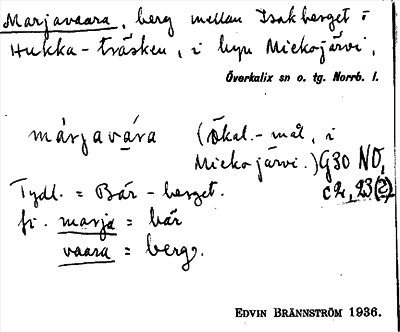 Marjavaara, berg mellan Isakberget o
Hukka-träsken, i byn Miekojärvi,
Överkalix sn o. tg. Norrb. l.
márjavára (Ökal.-mål, i
Miekojärvi.) G30 NO,
c2, 23(2)
Tydl. = Bär-berget.
fi. marja = bär
vaara = berg.
EDVIN BRÄNNSTRÖM 1936.